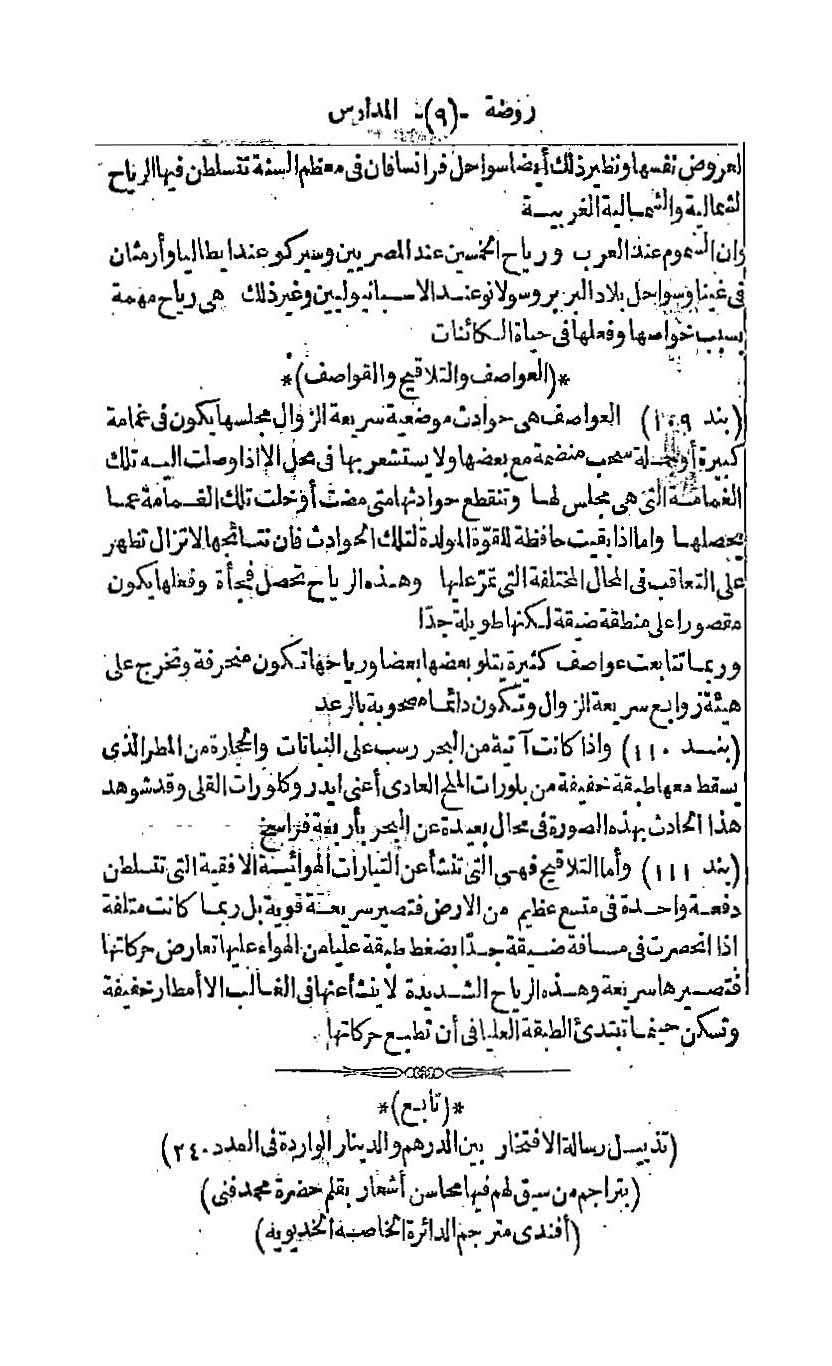 روضة -(٩)- المدارس
لعروض نفسها ونظير ذلك أيضا سواحل فرانسا فان فى معظم السنة تتسلطن فيها الرياح
لشمالية والشمالية الغربية
وان السموم عند العرب ورياح الخمسين عند المصريين وسيركو عند ايطاليا وأرمثان
فى غينا وسواحل بلاد البربر وسولانو عند الاسبانيوليين وغير ذلك هى رياح مهمة
بسبب خواصها وفعلها فى حياة الكائنات
*(العواصف والتلاقيح والقواصف)*
(بند ١٠٩) العواصف هى حوادث موضعية سريعة الزوال مجلسها يكون فى غمامة
كبيرة أو جملة سحب منضمة مع بعضها ولا يستشعر بها فى محل الا اذا وصلت اليه تلك
الغمامة التى هى مجلس لها وتنقطع حوادثها متى مضت أو خلت تلك الغمامة عما
يحصلها واما اذا بقيت حافظة للقوّة المولدة لتلك الحوادث فان نتائجها لا تزال تظهر
على التعاقب فى المحال المختلفة التى تمرّ عليها وهذه الرياح تحصل فجأة وفعلها يكون
مقصورا على منطقة ضيقة لكنها طويلة جدّا
وربما تتابعت عواصف كثيرة يتلو بعضها بعضا ورياحها تكون منحرفة وتخرج على
هيئة زوابع سريعة الزوال وتكون دائما مصحوبة بالرعد
(بند ١١٠) واذا كانت آتية من البحر رسب على النباتات والحجارة من المطر الذى
يسقط معها طبقة خفيفة من بلورات الملح العادى أعنى ايدروكلورات القلى وقد شوهد
هذا الحادث بهذه الصورة فى محال بعيدة عن البحر بأربعة فراسخ
(بند ١١١) وأما التلاقيح فهى التى تنشأ عن التيارات الهوائية الافقية التى تتسلطن
دفعة واحدة فى متسع عظيم من الارض فتصير سريعة قوية بل ربما كانت متلفة
اذا انحصرت فى مسافة ضيقة جدّا بضغط طبقة عليا من الهواء عليها تعارض حركاتها
فتصيرها سريعة وهذه الرياح الشديدة لا ينشأ عنها فى الغالب الا أمطار خفيفة
وتسكن حينما تبتدئ الطبقة العليا فى أن تطيع حركاتها
*(تابع)*
(تذييل رسالة الافتخار بين الدرهم والدينار الواردة فى العدد ٢٤٠)
(بتراجم من سيق لهم فيها محاسن أشعار بقلم حضرة محمد فنى)
(أفندى مترجم الدائرة الخاصة الخديوية)